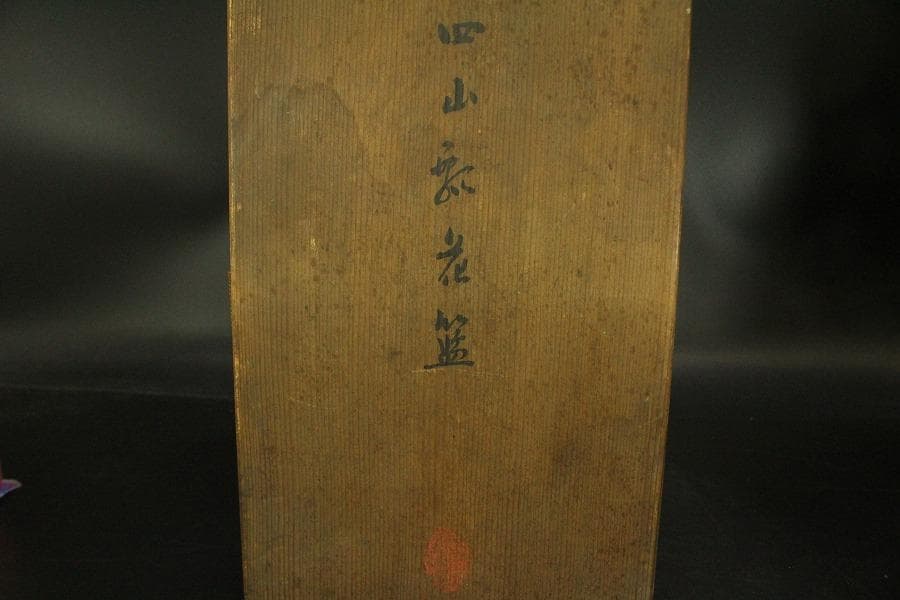 四山瓢花籃